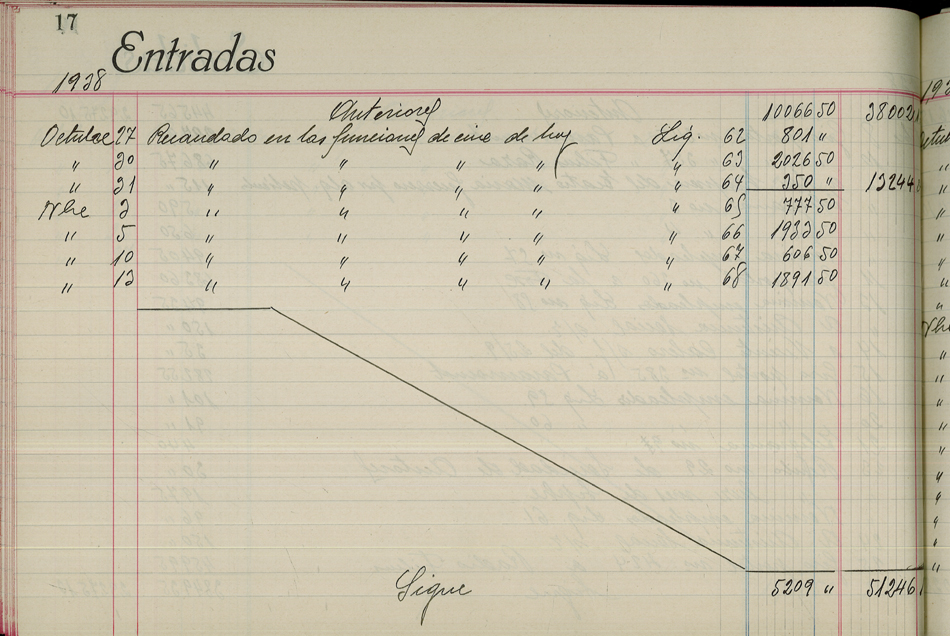 17
Entradas
1938
Anteriores 10066 50 38002
Octubre 27 Recaudado en las funciones de cine de hoy Liq. 62 801 "
" 30 " " " " " 63 2026 50
" 31 " " " " " 64 350 " 13244
Nbre 3 " " " " " 65 777 50
" 5 " " " " " 66 1933 50
" 10 " " " " " 67 606 50
" 13 " " " " " 68 1891 50
Sigue 5209 " 51246